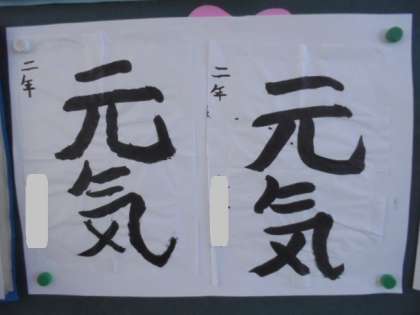 元気
二年
元気
二年